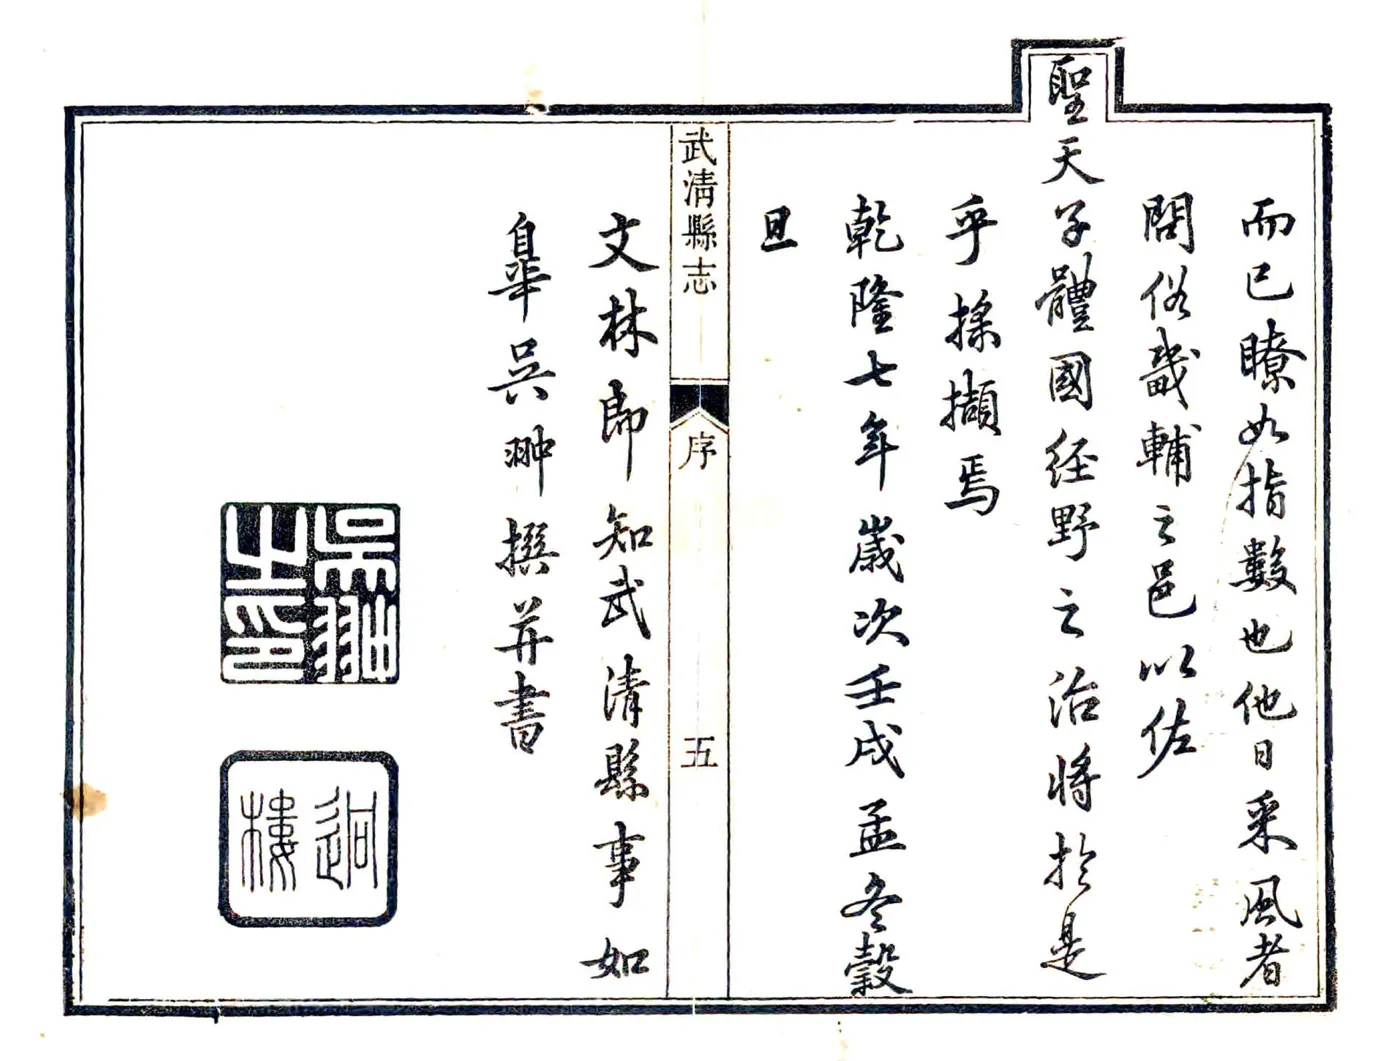 而已瞭如指數也他日采風者
問俗畿輔之邑以佐
聖天子體國經野之治將於是
乎採擷焉
乾隆七年歲次壬戌孟冬穀
旦
武清縣志
序
五
文林郎知武清縣事如
皋吳翀撰并書
吳翀之印
迥樓